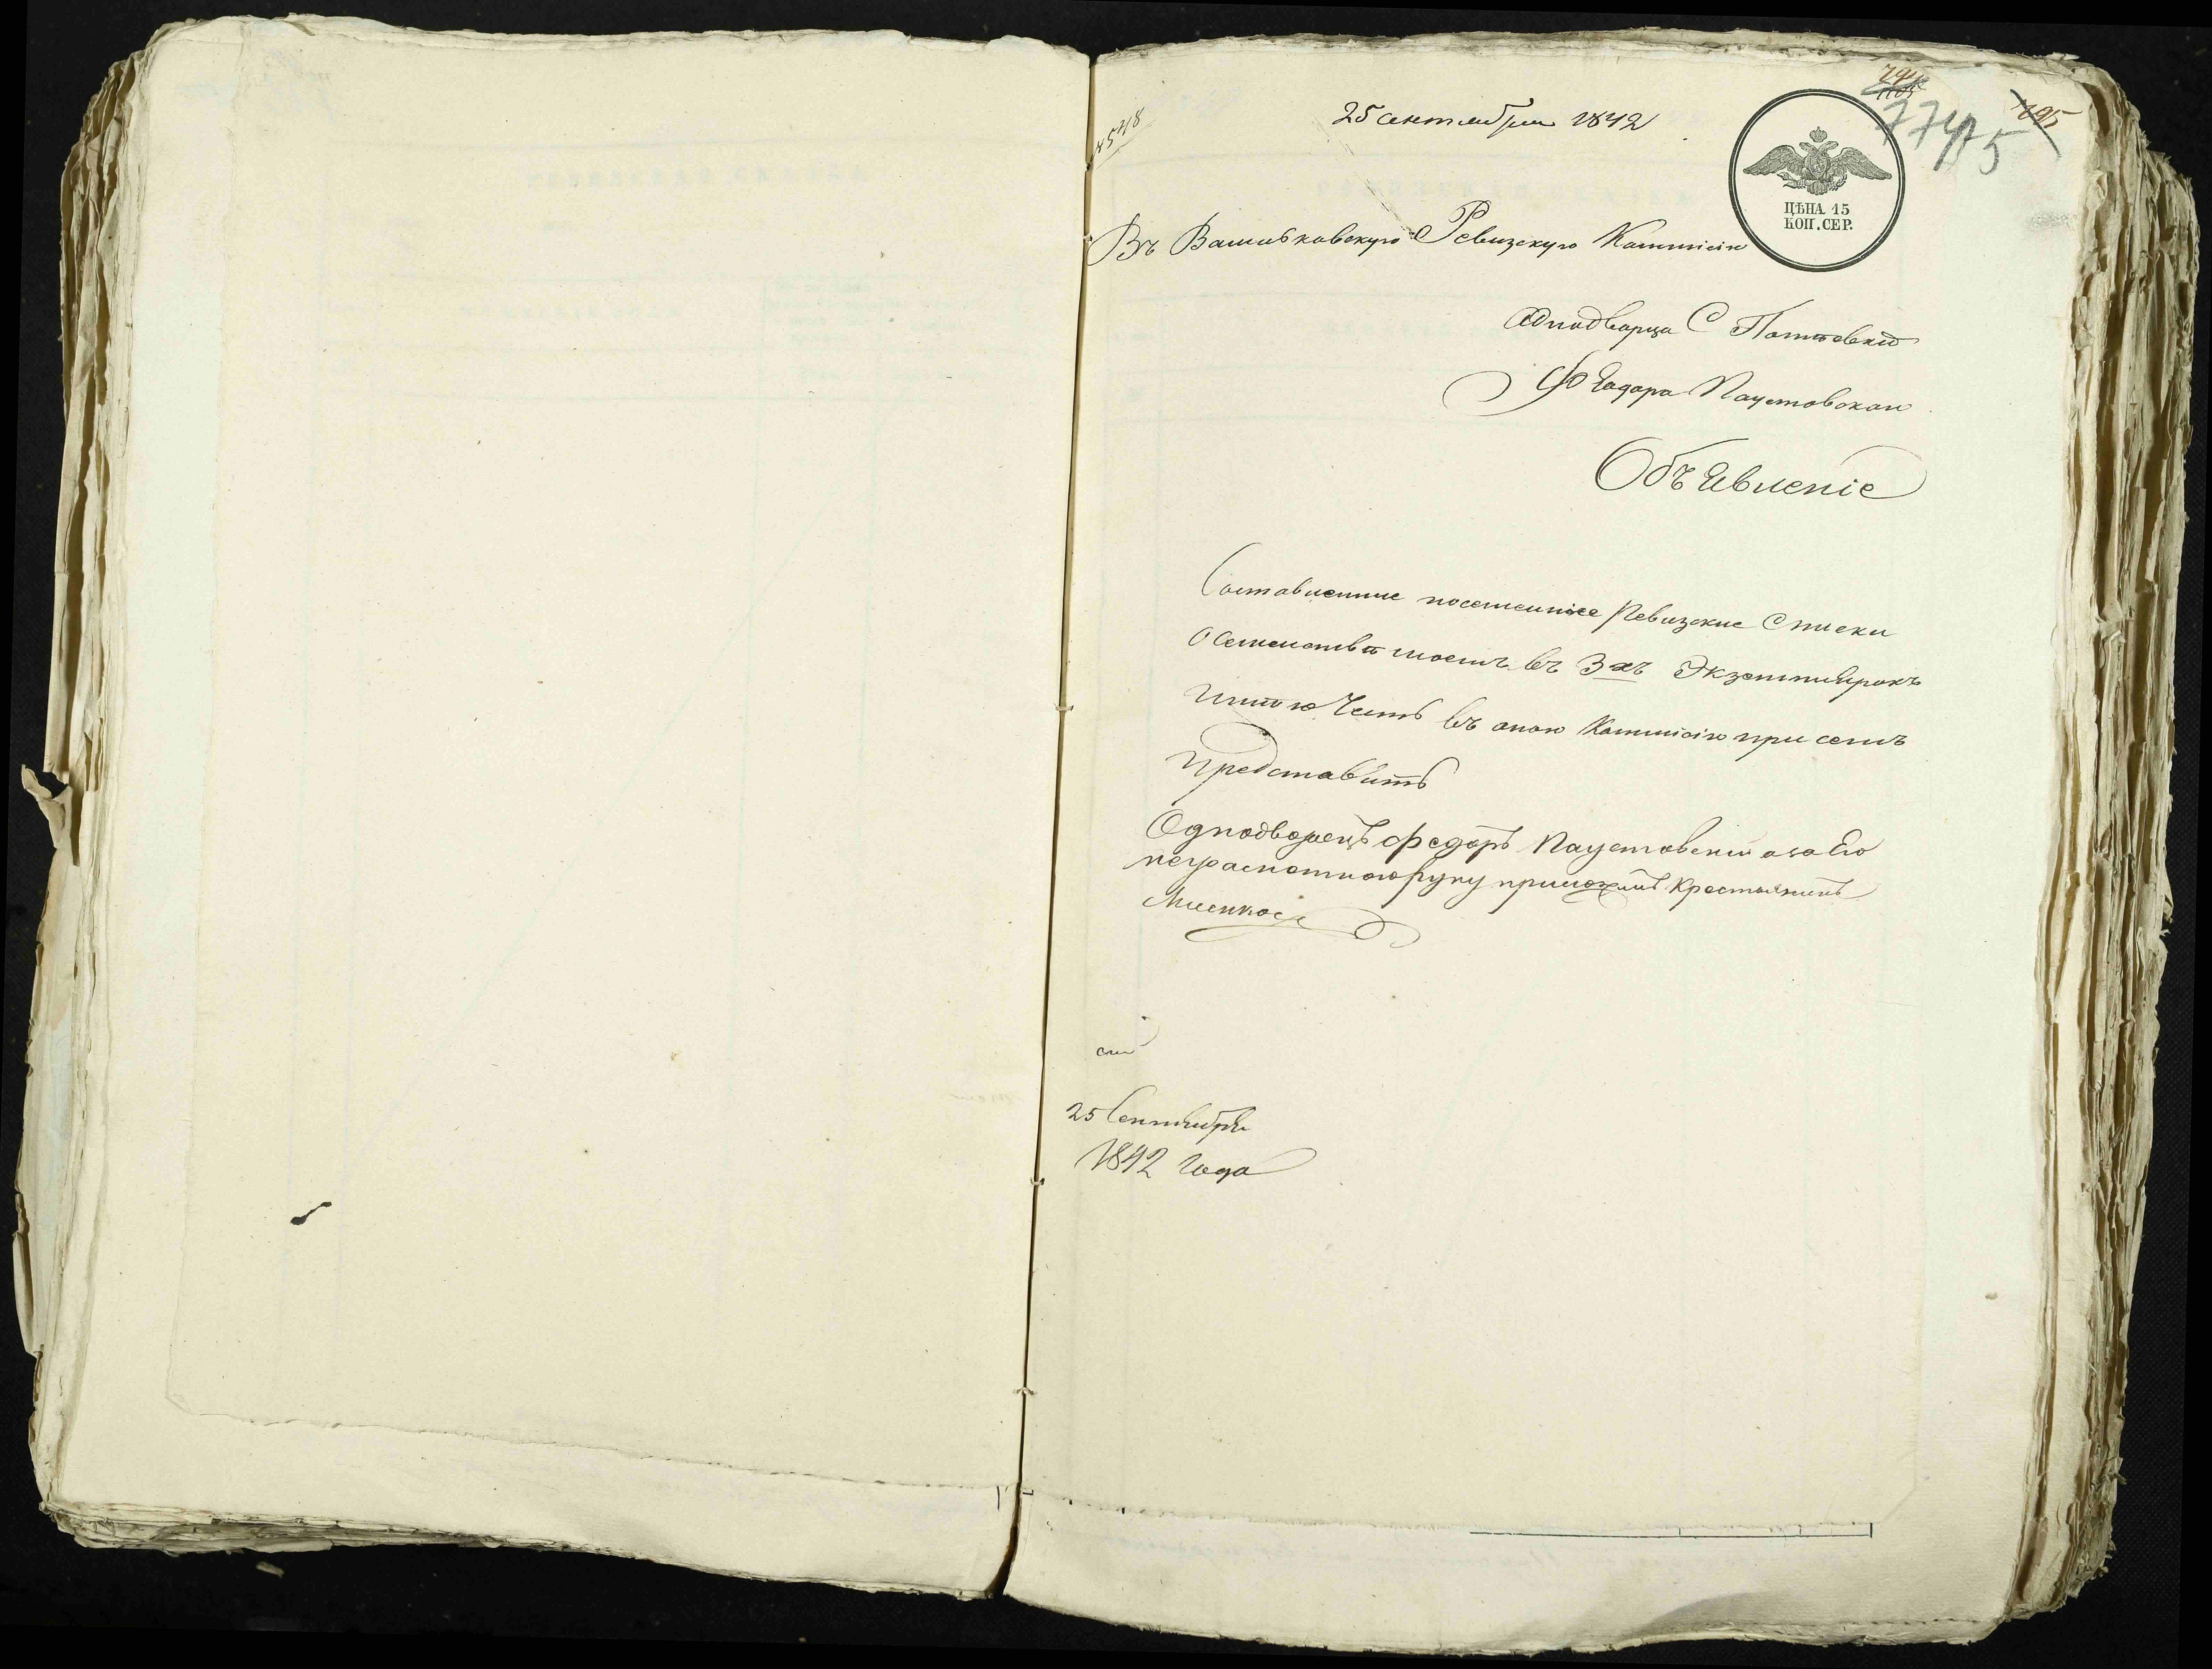 25 сентября 1842
ЦѢНА 15
КОП. СЕР.
Въ Васильковскую Ревизскую Коммисію
Однодворца С
Федора Паустовскаго
Объявленіе
Составленные Ревизские Списки
О Семействѣ моемъ въ 3хъ Экземплярахъ
имѣю Честь въ оною Коммисію при семъ
представить
Однодворецъ Федоръ Паустовский а за Его
неграмотного руку приложилъ Крестьянинъ
25 Сентября
1842 Года